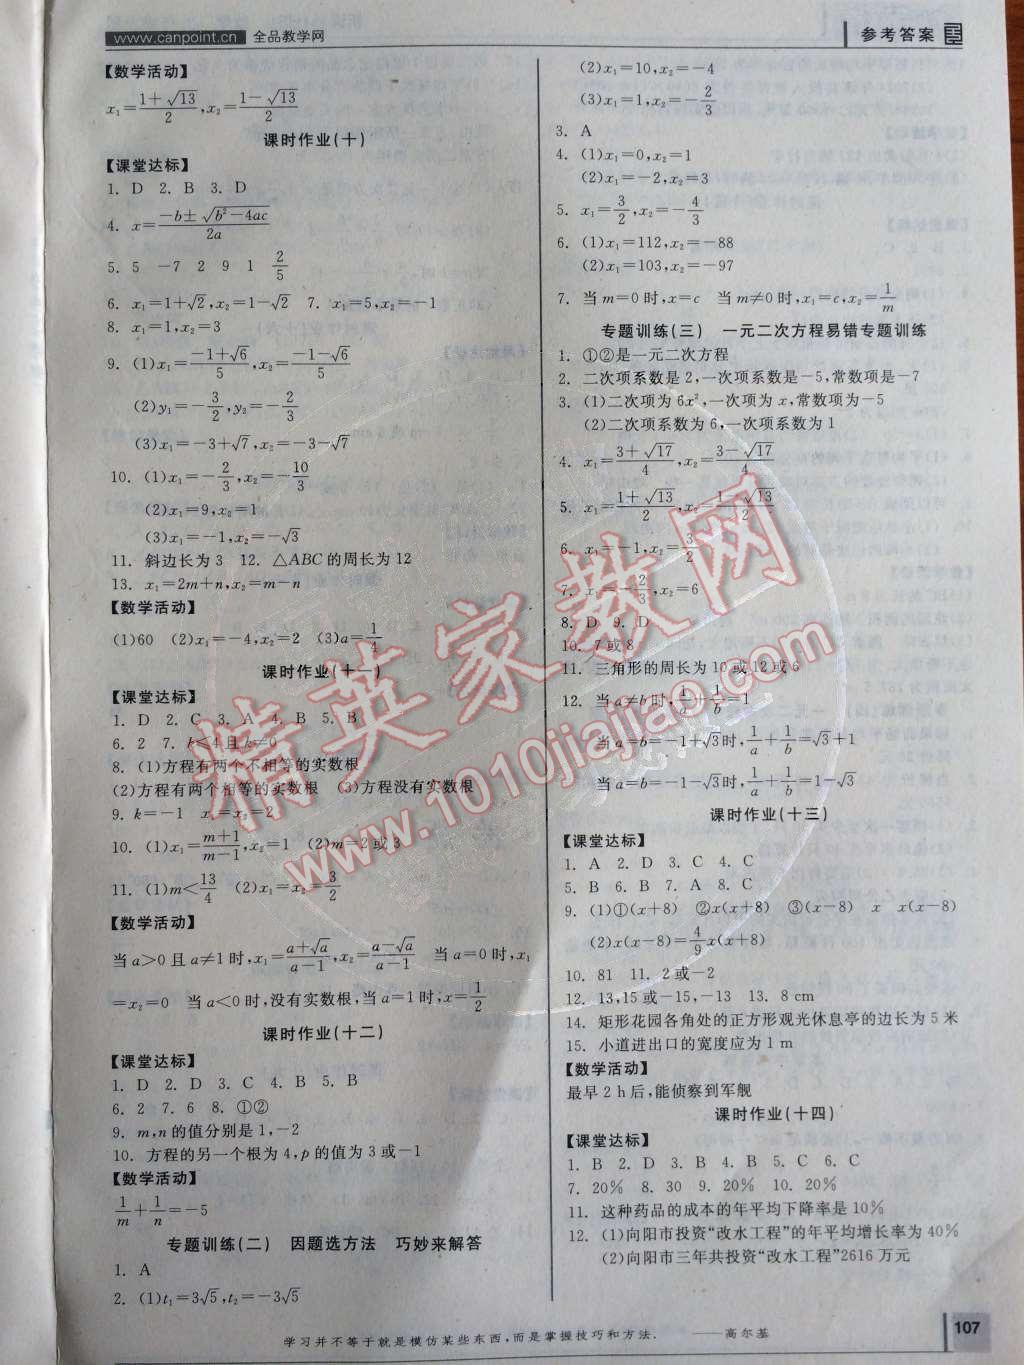 www.canpoint.cn 全品教学网
参考答案
【数学活动】
x₁=(1+√13)/2,x₂=(1-√13)/2
课时作业(十)
【课堂达标】
1. D 2. B 3. D
4. x=(-b±√(b²-4ac))/2a
5. 5 -7 2 9 1 2/5
6. x₁=1+√2,x₂=1-√2 7. x₁=5,x₂=-1
8. x₁=1,x₂=3
9. (1)x₁=(-1+√6)/5,x₂=(-1-√6)/5
(2)y₁=-3/2,y₂=-2/3
(3)x₁=-3+√7,x₂=-3-√7
10. (1)x₁=-2/3,x₂=-10/3
(2)x₁=9,x₂=1
(3)x₁=-1,x₂=-√3
11. 斜边长为3 12. △ABC的周长为12
13. x₁=2m+n,x₂=m-n
【数学活动】
(1)60 (2)x₁=-4,x₂=2 (3)a=1/4
课时作业(十一)
【课堂达标】
1. D 2. C 3. A 4. B 5. B
6. 2 7. k<4且k≠0
8. (1)方程有两个不相等的实数根
(2)方程有两个相等的实数根 (3)方程没有实数根
9. k=-1 x₁=x₂=2
10. (1)x₁=(m+1)/(m-1),x₂=1 (2)m=2或3
11. (1)m<13/4 (2)x₁=x₂=3/2
【数学活动】
当a>0且a≠1时,x₁=(a+√a)/(a-1),x₂=(a-√a)/(a-1) 当a=0时,x₁
=x₂=0 当a<0时,没有实数根,当a=1时,x=1/2
课时作业(十二)
【课堂达标】
1. D 2. D 3. C 4. B 5. B
6. 2 7. 6 8. ①②
9. m,n的值分别是1,-2
10. 方程的另一个根为4,p的值为3或-1
【数学活动】
1/m+1/n=-5
专题训练(二) 因题选方法 巧妙来解答
1. A
2. (1)t₁=3√5,t₂=-3√5
(2)x₁=10,x₂=-4
(3)x₁=1,x₂=-2/3
3. A
4. (1)x₁=0,x₂=1
(2)x₁=-2,x₂=3
5. x₁=3/2,x₂=-4/3
6. (1)x₁=112,x₂=-88
(2)x₁=103,x₂=-97
7. 当m=0时,x=c 当m≠0时,x₁=c,x₂=1/m
专题训练(三) 一元二次方程易错专题训练
1. ①②是一元二次方程
2. 二次项系数是2,一次项系数是-5,常数项是-7
3. (1)二次项为6x²,一次项为x,常数项为-5
(2)二次项系数为6,一次项系数为1
4. x₁=(3+√17)/4,x₂=(3-√17)/4
5. x₁=(1+√13)/2,x₂=(1-√13)/2
6. x₁=-1,x₂=3/2
7. x₁=-2/3,x₂=6
8. D 9. D
10. 7或8
11. 三角形的周长为10或12或6
12. 当a≠b时,1/a+1/b=1
当a=b=-1+√3时,1/a+1/b=√3+1
当a=b=-1-√3时,1/a+1/b=1-√3
课时作业(十三)
【课堂达标】
1. A 2. D 3. C 4. C
5. B 6. B 7. A 8. C
9. (1)①(x+8) ②x(x+8) ③(x-8) x x(x-8)
(2)x(x-8)=4/9x(x+8)
10. 81 11. 2或-2
12. 13,15或-15,-13 13. 8 cm
14. 矩形花园各角处的正方形观光休息亭的边长为5米
15. 小道进出口的宽度应为1 m
【数学活动】
最早2 h后,能侦察到军舰
课时作业(十四)
【课堂达标】
1. B 2. D 3. D 4. B 5. C 6. C
7. 20% 8. 30 9. 20% 10. 20%
11. 这种药品的成本的年平均下降率是10%
12. (1)向阳市投资“改水工程”的年平均增长率为40%
(2)向阳市三年共投资“改水工程”2616万元
精英家教网
www.1010jiajiao.com
学习并不等于就是模仿某些东西,而是掌握技巧和方法. ——高尔基
107